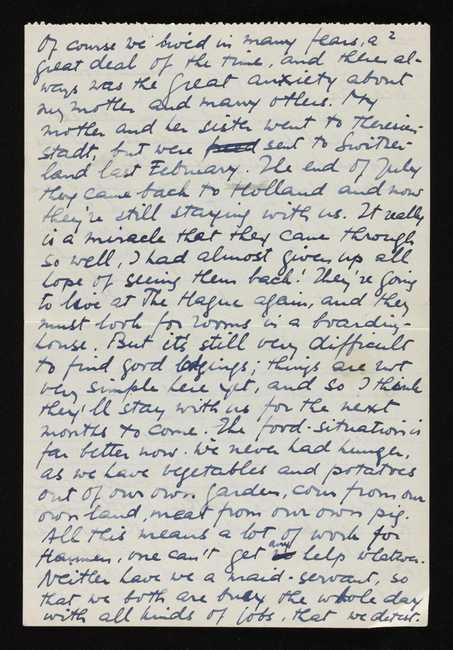 Of course we lived in many fears, a 2
great deal of the time, and there al-
ways was the great anxiety about
my mother and many others. My
mother and her sister went to Theresien-
stadt, but were sent to Switzer-
land last February. The end of July
they came back to Holland and now
they're still staying with us. It really
is a miracle that they came through
so well, I had almost given up all
hope of seeing them back! They're going
to live at The Hague again, and they
must look for rooms in a boarding-
house. But it's still very difficult
to find good lodgings; things are not
very simple here yet, and so I think
they'll stay with us for the next
months to come. The food-situation is
far better now. We never had hunger,
as we have vegetables and potatoes
out of our own garden, corn from our
own land, meat from our own pig.
All this means a lot of work for
one can't get any help whatever.
Neither have we a maid-servant, so
that we both are busy the whole day
with all kinds of jobs, that we detest.